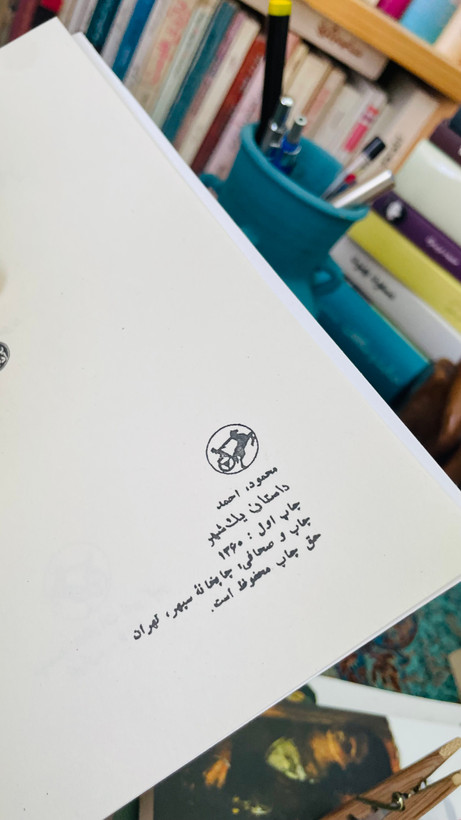 محمود، احمد
داستان یک‌شهر
چاپ اول : ۱۳۶۰
چاپ و صحافی: چاپخانهٔ سپهر، تهران
حق چاپ محفوظ است.